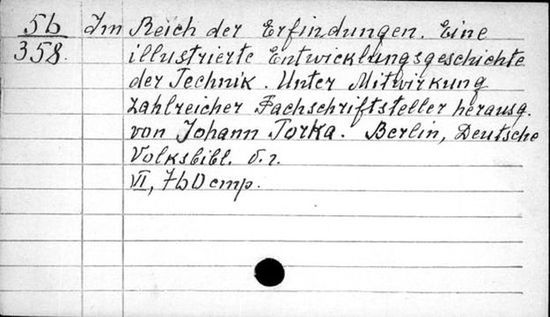 56 Im Reich der Erfindungen. Eine
358. illustrierte Entwicklungsgeschichte
der Technik. Unter Mitwirkung
zahlreicher Fachschriftsteller herausg.
von Johann Torka. Berlin, Deutsche
Volksbibl. s.a.
VI, 760 стр.